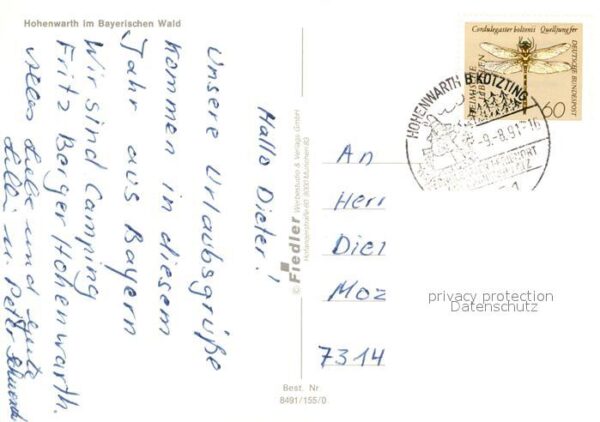 Hohenwarth im Bayerischen Wald
Hallo Dieter!
Unsere Urlaubsgrüße
kommen in diesem
Jahr aus Bayern
Wir sind Camping
Fritz Berger Hohenwarth.
Alles Liebe und gute
Lilli u. Peter
© Fiedler Werbestudio & Verlags GmbH
8000 München 83
Cordulegaster boltonii Quelljungfer
DEUTSCHE BUNDESPOST
60
HOHENWARTH B KÖTZTING
-9.-8.91-16
An
Herr
Diet
Moz
7314
privacy protection
Datenschutz
Best. Nr
8491/155/0